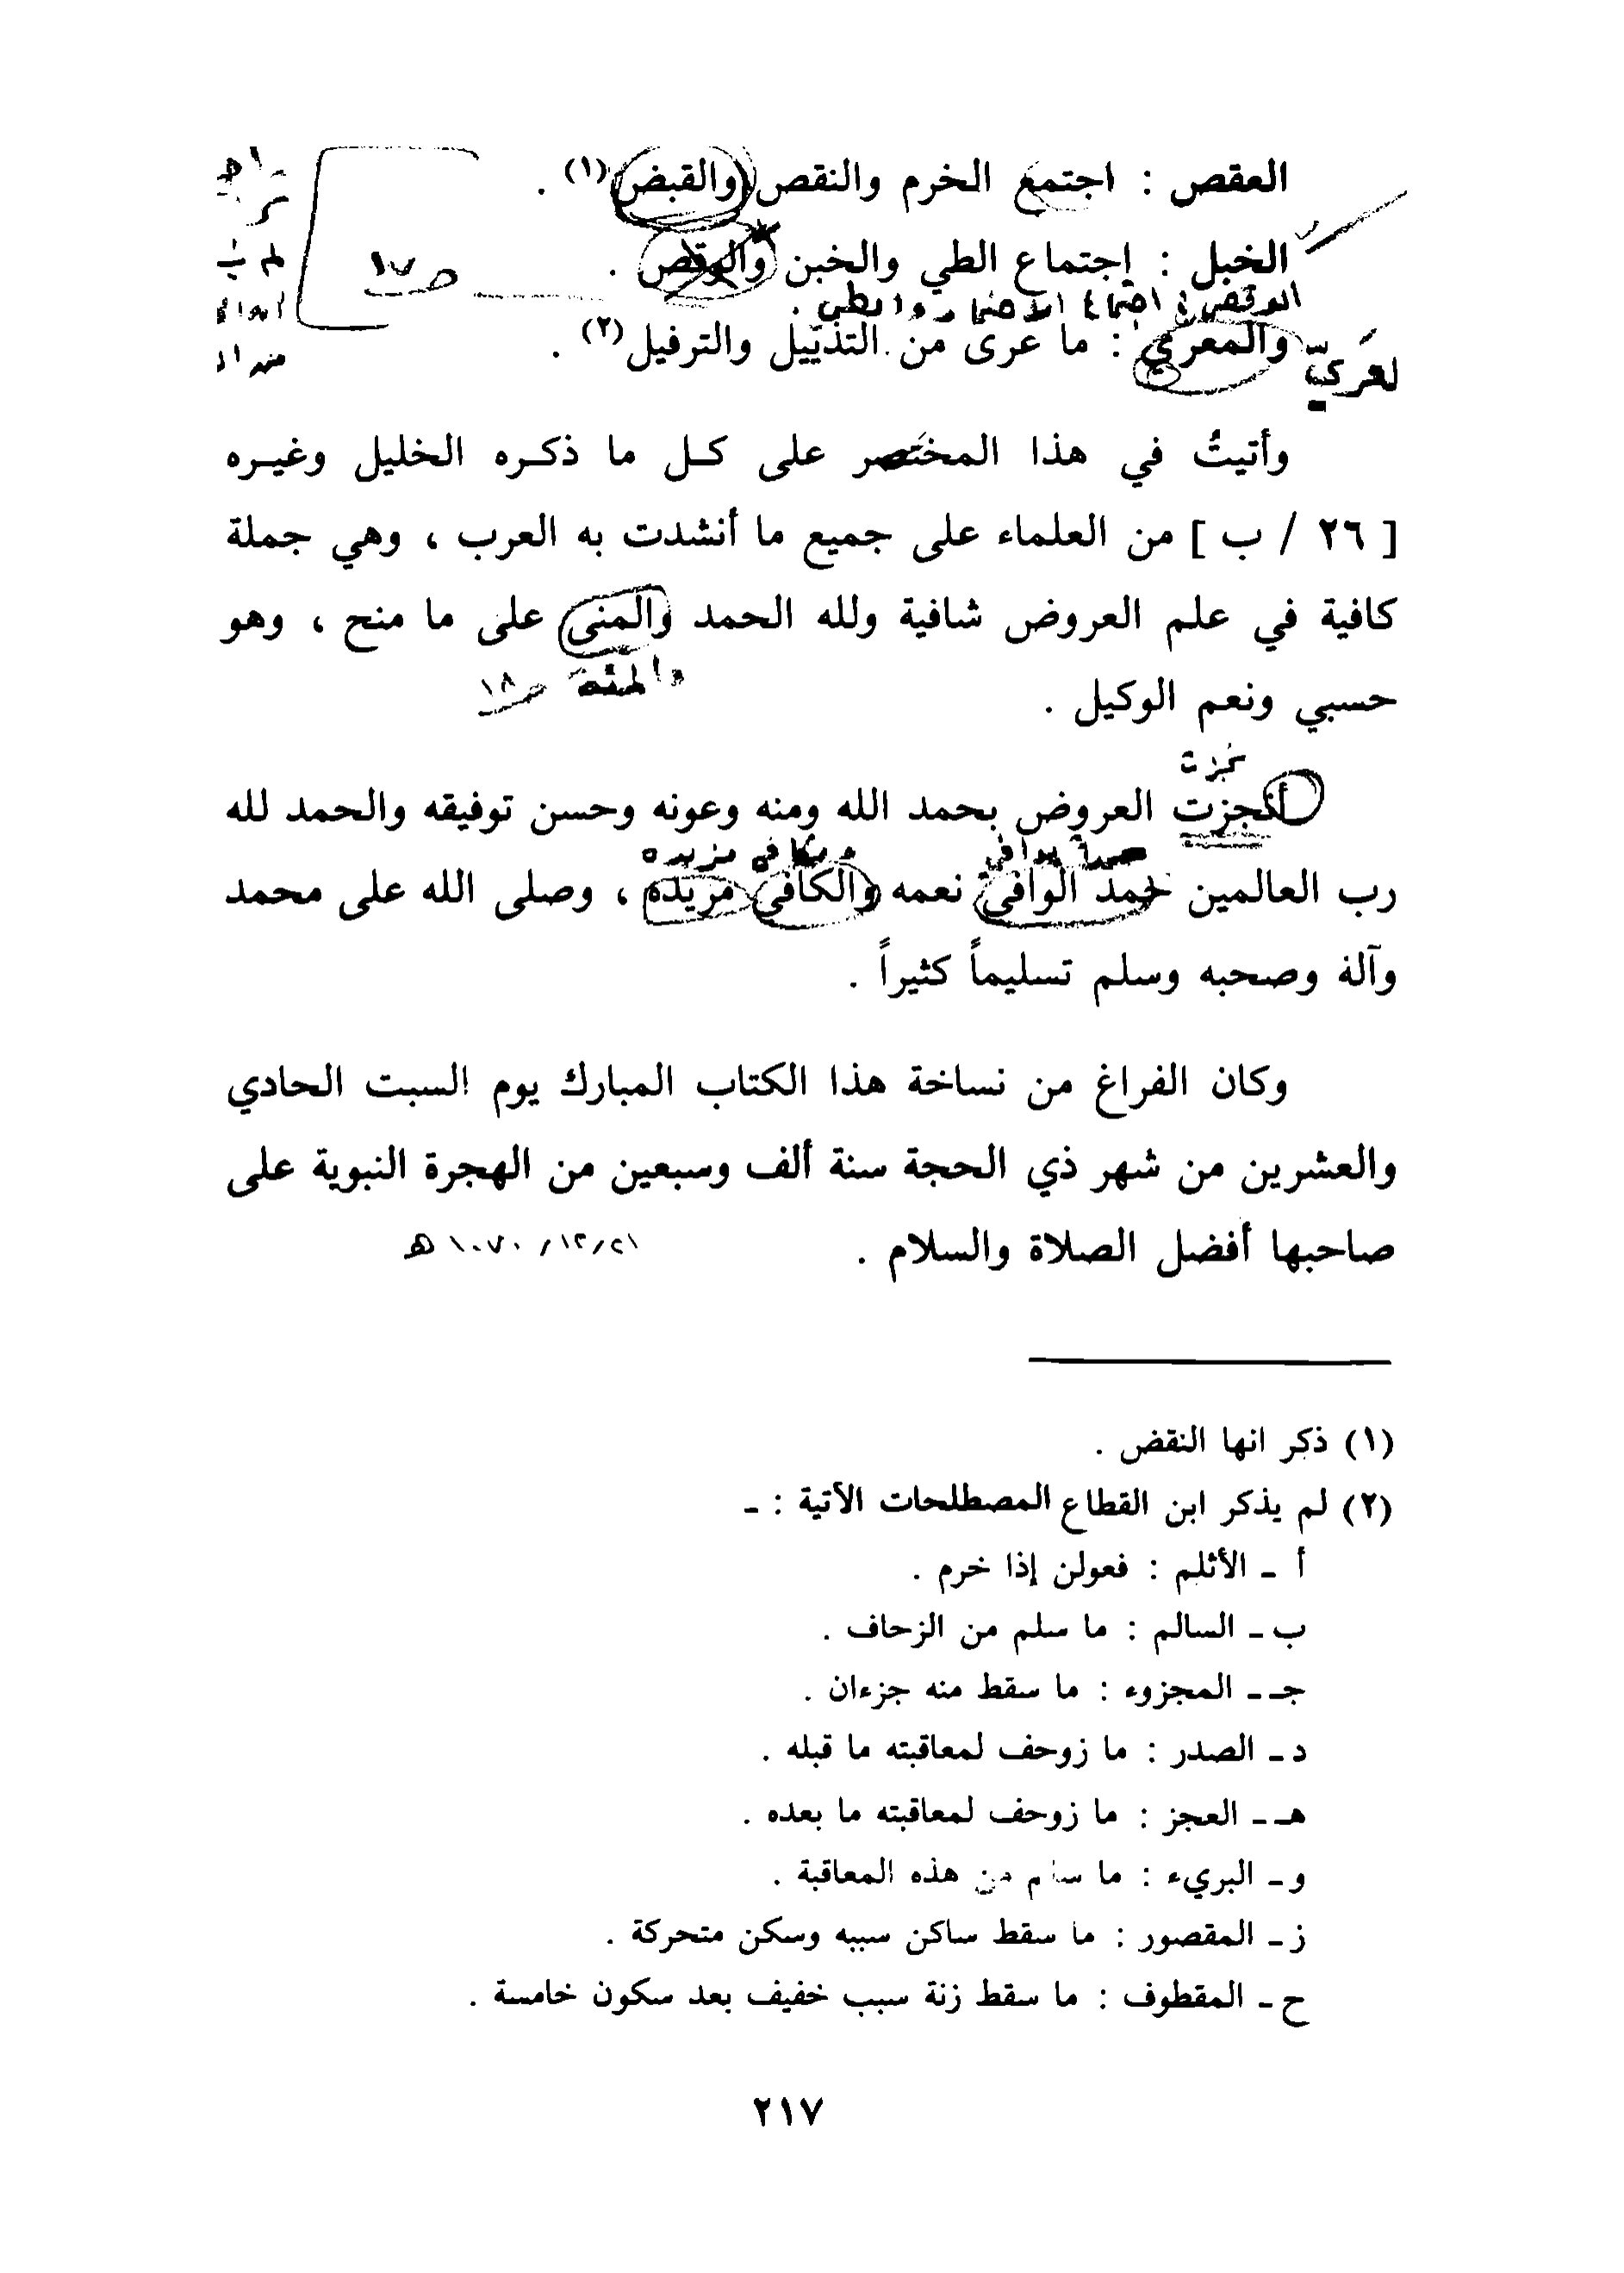 العقص : اجتمع الخرم والنقص والقبض(١) .
الخبل : إجتماع الطي والخبن والوقص .
ص ١٧
الوقص : اجتماع الإضمار والطي .
والمعرّي : ما عرى من التذييل والترفيل(٢) .
وأتيتُ في هذا المختصر على كـل ما ذكـره الخليل وغيـره
[ ٢٦ / ب ] من العلماء على جميع ما أنشدت به العرب ، وهي جملة
كافية في علم العروض شافية ولله الحمد والمنى على ما منح ، وهو
والمنة ص ١٨
حسبي ونعم الوكيل .
نجزت
أنجزت العروض بحمد الله ومنه وعونه وحسن توفيقه والحمد لله
حمداً يوافي ويكافي مزيده
رب العالمين حمد الوافي نعمه والكافي مريده ، وصلى الله على محمد
وآلة وصحبه وسلم تسليماً كثيراً .
وكان الفراغ من نساخة هذا الكتاب المبارك يوم السبت الحادي
والعشرين من شهر ذي الحجة سنة ألف وسبعين من الهجرة النبوية على
صاحبها أفضل الصلاة والسلام .
٢١/١٢/١٠٧٠ هـ
(١) ذكر انها النقض .
(٢) لم يذكر ابن القطاع المصطلحات الآتية : ـ
أ ـ الأثلم : فعولن إذا خرم .
ب ـ السالم : ما سلم من الزحاف .
جـ ـ المجزوء : ما سقط منه جزءان .
د ـ الصدر : ما زوحف لمعاقبته ما قبله .
هـ ـ العجز : ما زوحف لمعاقبته ما بعده .
و ـ البريء : ما سلم من هذه المعاقبة .
ز ـ المقصور : ما سقط ساكن سببه وسكن متحركة .
ح ـ المقطوف : ما سقط زنة سبب خفيف بعد سكون خامسة .
٢١٧